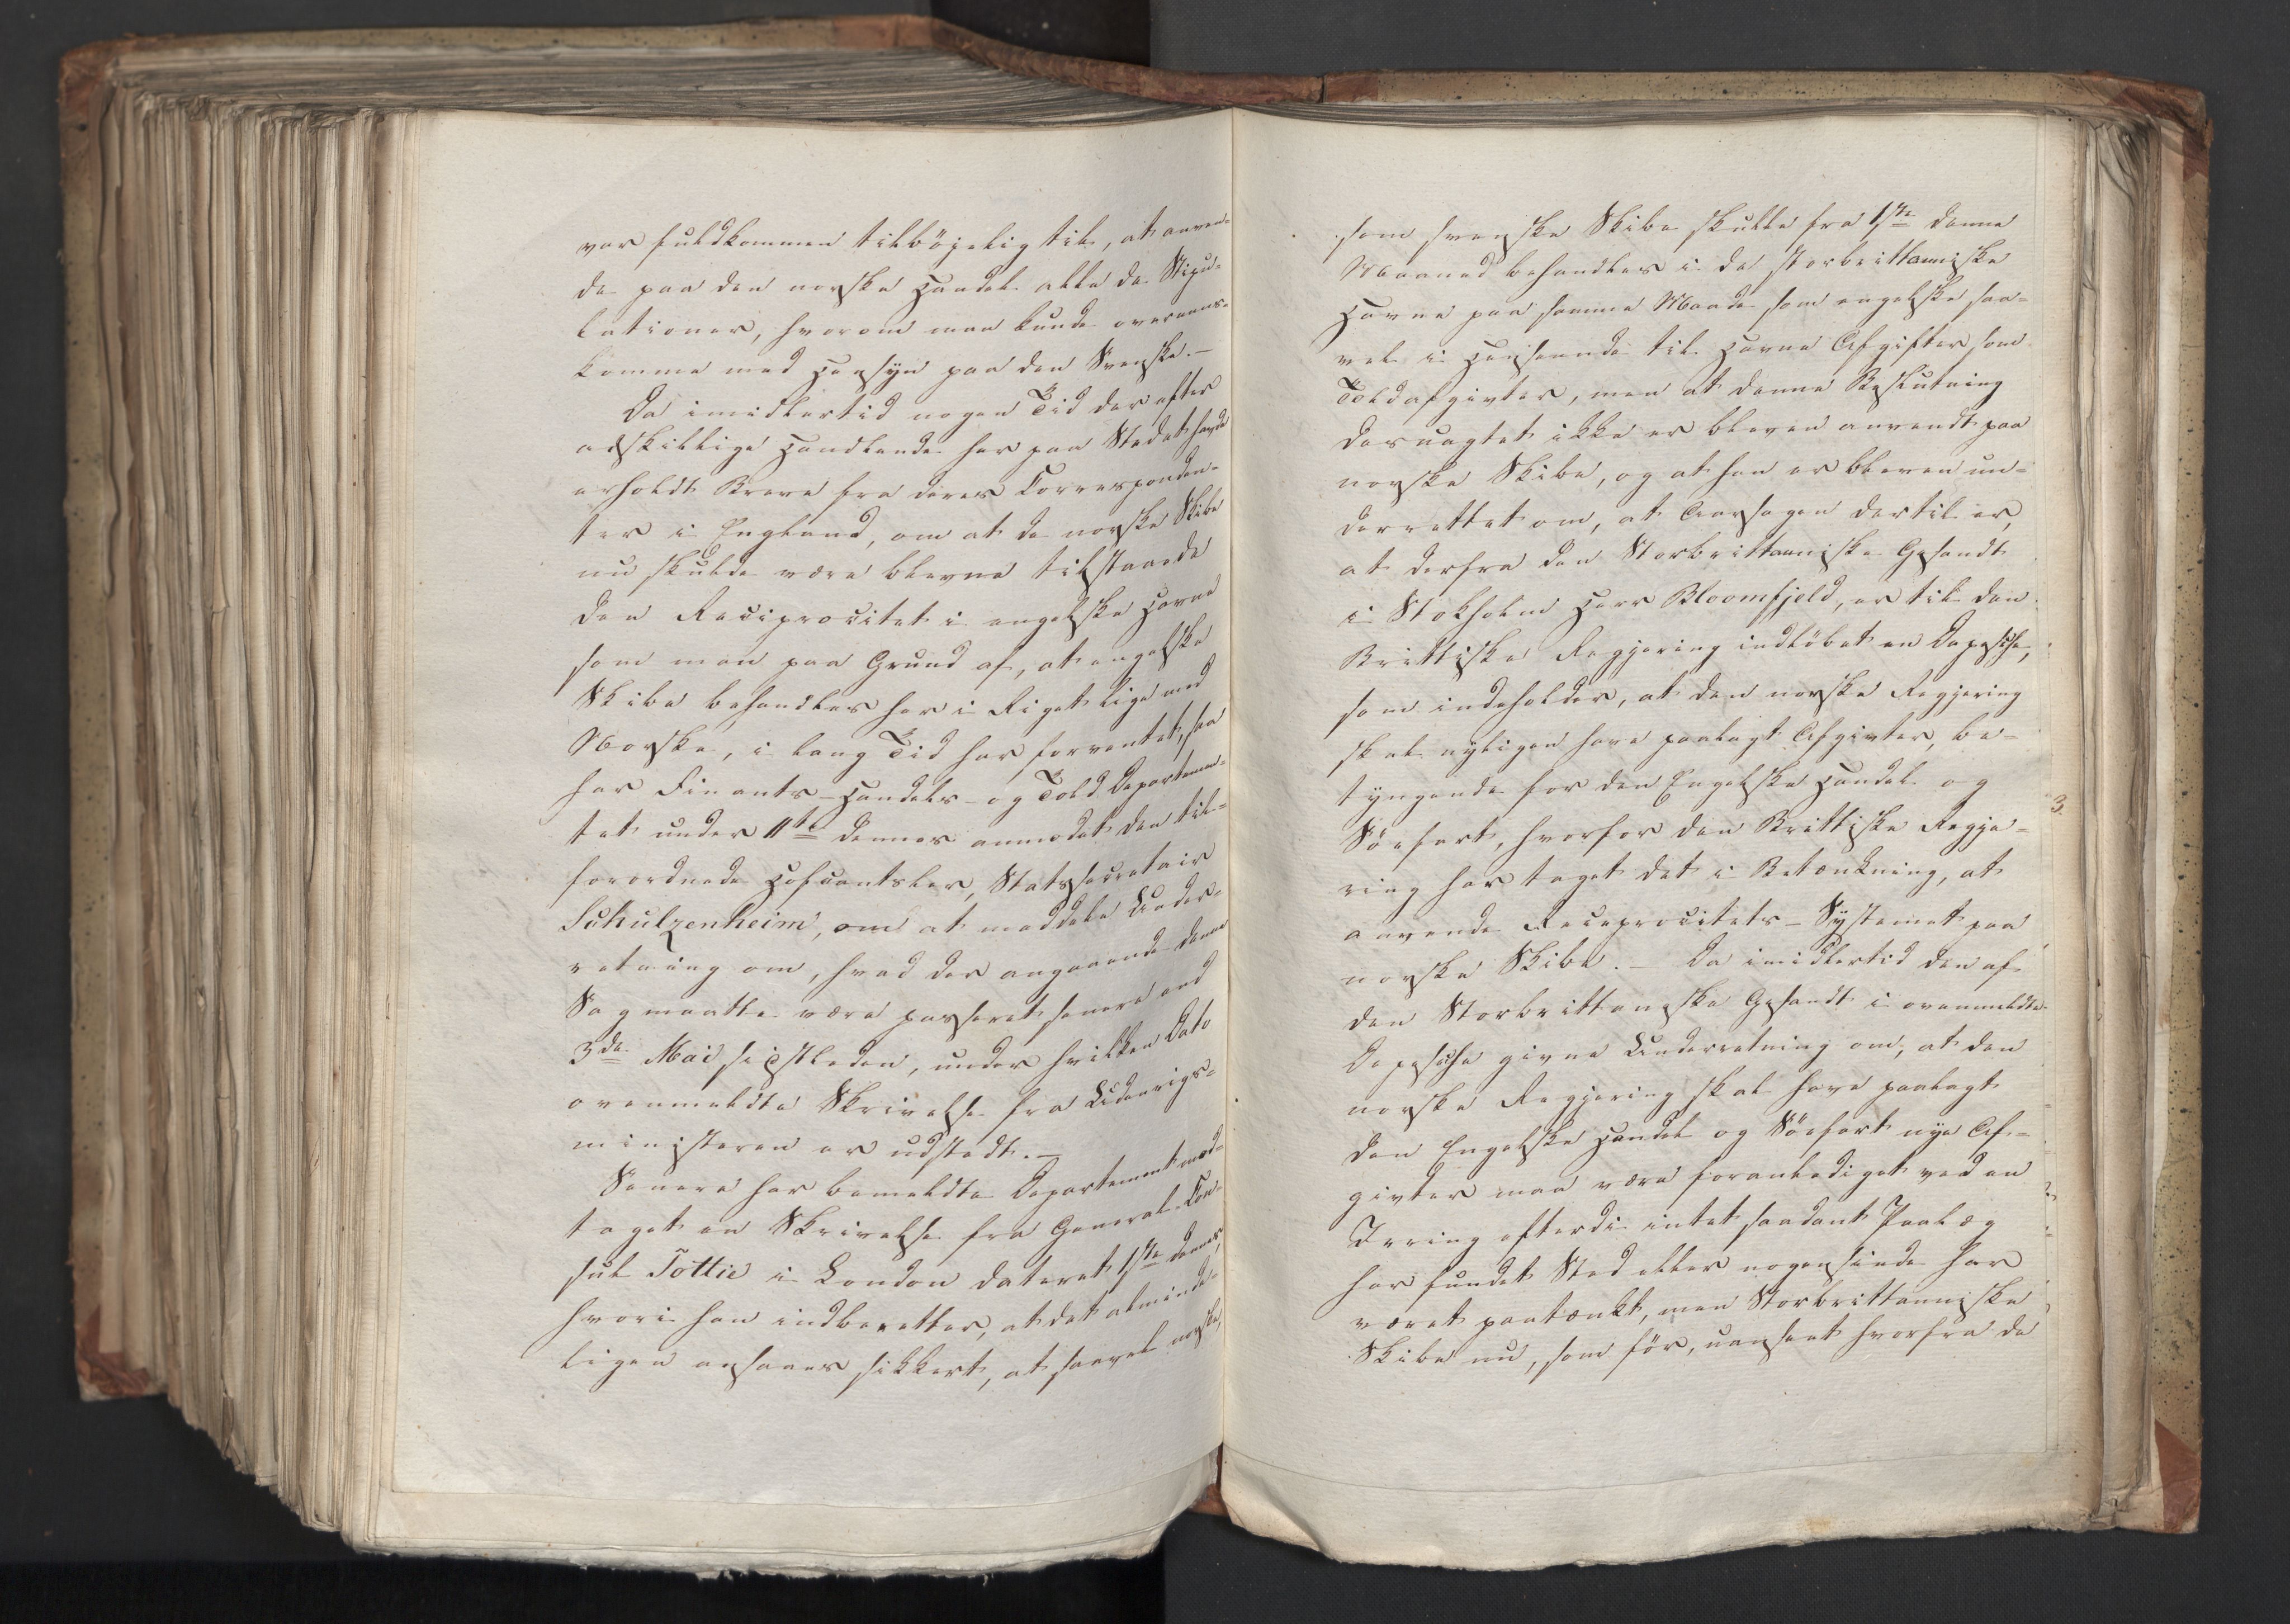 var fuldkommen tilböjelig til, at anven-
de paa den norske Handel alle de Stipu-
lationer, hvorom man kunde overeens-
komme med Hensyn paa den Svenske.-
Da imidlertid nogen Tid derefter
adskillige Handlende her paa Stedet havde
erholdt Breve fra deres Corresponden-
ter i England, om at de norske Skibe
nu skulde være blevne tilstaaede
den Reciprocitet i engelske Havne
som man paa Grund af, at engelske
Skibe behandles her i Riget lige med
Norske, i lang Tid har forventet, saa
har Finants- Handels- og Told Departemen-
tet under 11te dennes anmodet den til-
forordnede Hofcantsler, Statssecretair
Schulzenheim, om at meddele Under-
retning om, hvad der angaaende denne
Sag maatte være passeret senere end
3de Mai sidstleden, under hvilken Dato
ovenmeldte Skrivelse fra Udenrigs-
ministeren er udstedt.-
Senere har bemeldte Departement mod-
taget en Skrivelse fra General-Con-
sul Tottie i London dateret 1ste dennes,
hvori han indberetter, at det alminde-
ligen ansaaes sikkert, at saavel norske,
som svenske Skibe skulle fra 1ste denne
Maaned behandles i de storbrittanniske
Havne paa samme Maade som engelske saa-
vel i Henseende til Havne Afgifter som
Toldafgivter, men at denne Beslutning
desuagtet ikke er bleven anvendt paa
norske Skibe, og at han er bleven un-
derrettet om, at Aarsagen dertil er,
at derfra den Storbrittanniske Gesandt
i Stokholm Herr Bloomfjeld, er til den
Brittiske Regjering indlöbet en Depesche,
som indeholder, at den norske Regjering
skal nyligen have paalagt Afgivter, be-
tyngende for den Engelske Handel og
Söefart, hvorfor den Brittiske Regje-
ring har taget det i Betænkning, at
anvende Reciprocitets-Systemet paa
norske Skibe.- Da imidlertid den af
den Storbrittanske Gesandt i ovenmeldte
Depesche givne Underretning om, at den
norske Regjering skal have paalagt
den Engelske Handel og Söefart nye Af-
givter maa være foranlediget ved en
Irring efterdi intet saadant Paalæg
har fundet Sted eller nogensinde har
været paatænkt, men Storbrittanniske
Skibe nu, som för, uanseet hvorfra de
3